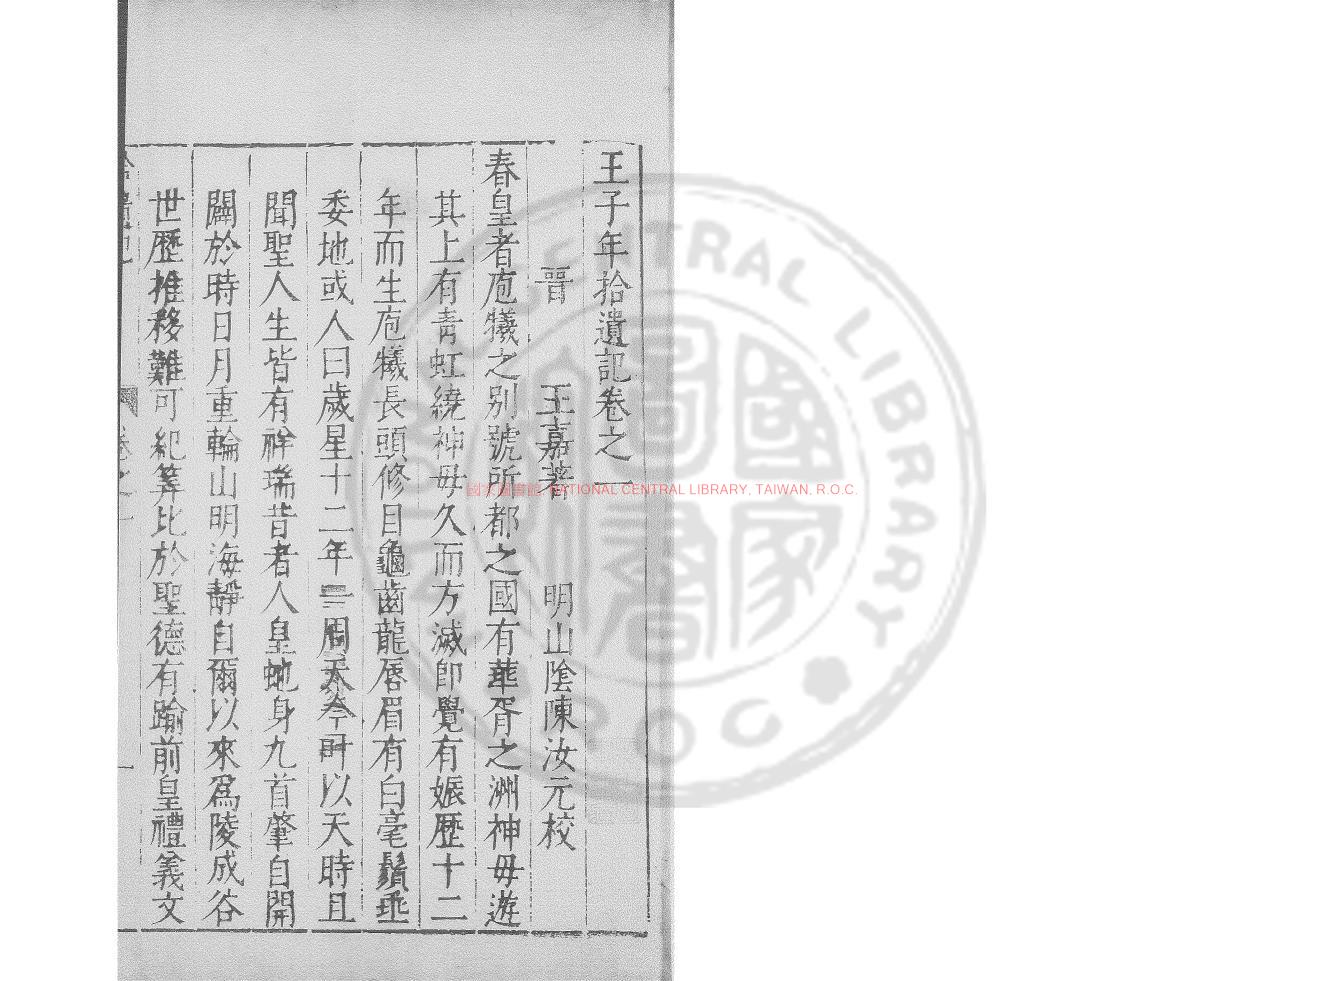 王子年拾遺記卷之一
晉 王嘉著 明山陰陳汝元校
春皇者庖犧之別號所都之國有華胥之洲神母遊
其上有青虹繞神母久而方滅卽覺有娠歷十二
年而生庖犧長頭修目龜齒龍唇眉有白毫鬚垂
委地或人曰歲星十二年一周天今叶以天時且
聞聖人生皆有祥瑞昔者人皇蛇身九首肇自開
闢於時日月重輪山明海靜自爾以來爲陵成谷
世歷推移難可紀筭比於聖德有踰前皇禮義文
拾遺記 卷之一 一
國家圖書館, NATIONAL CENTRAL LIBRARY, TAIWAN, R.O.C.
CENTRAL LIBRARY
ROC